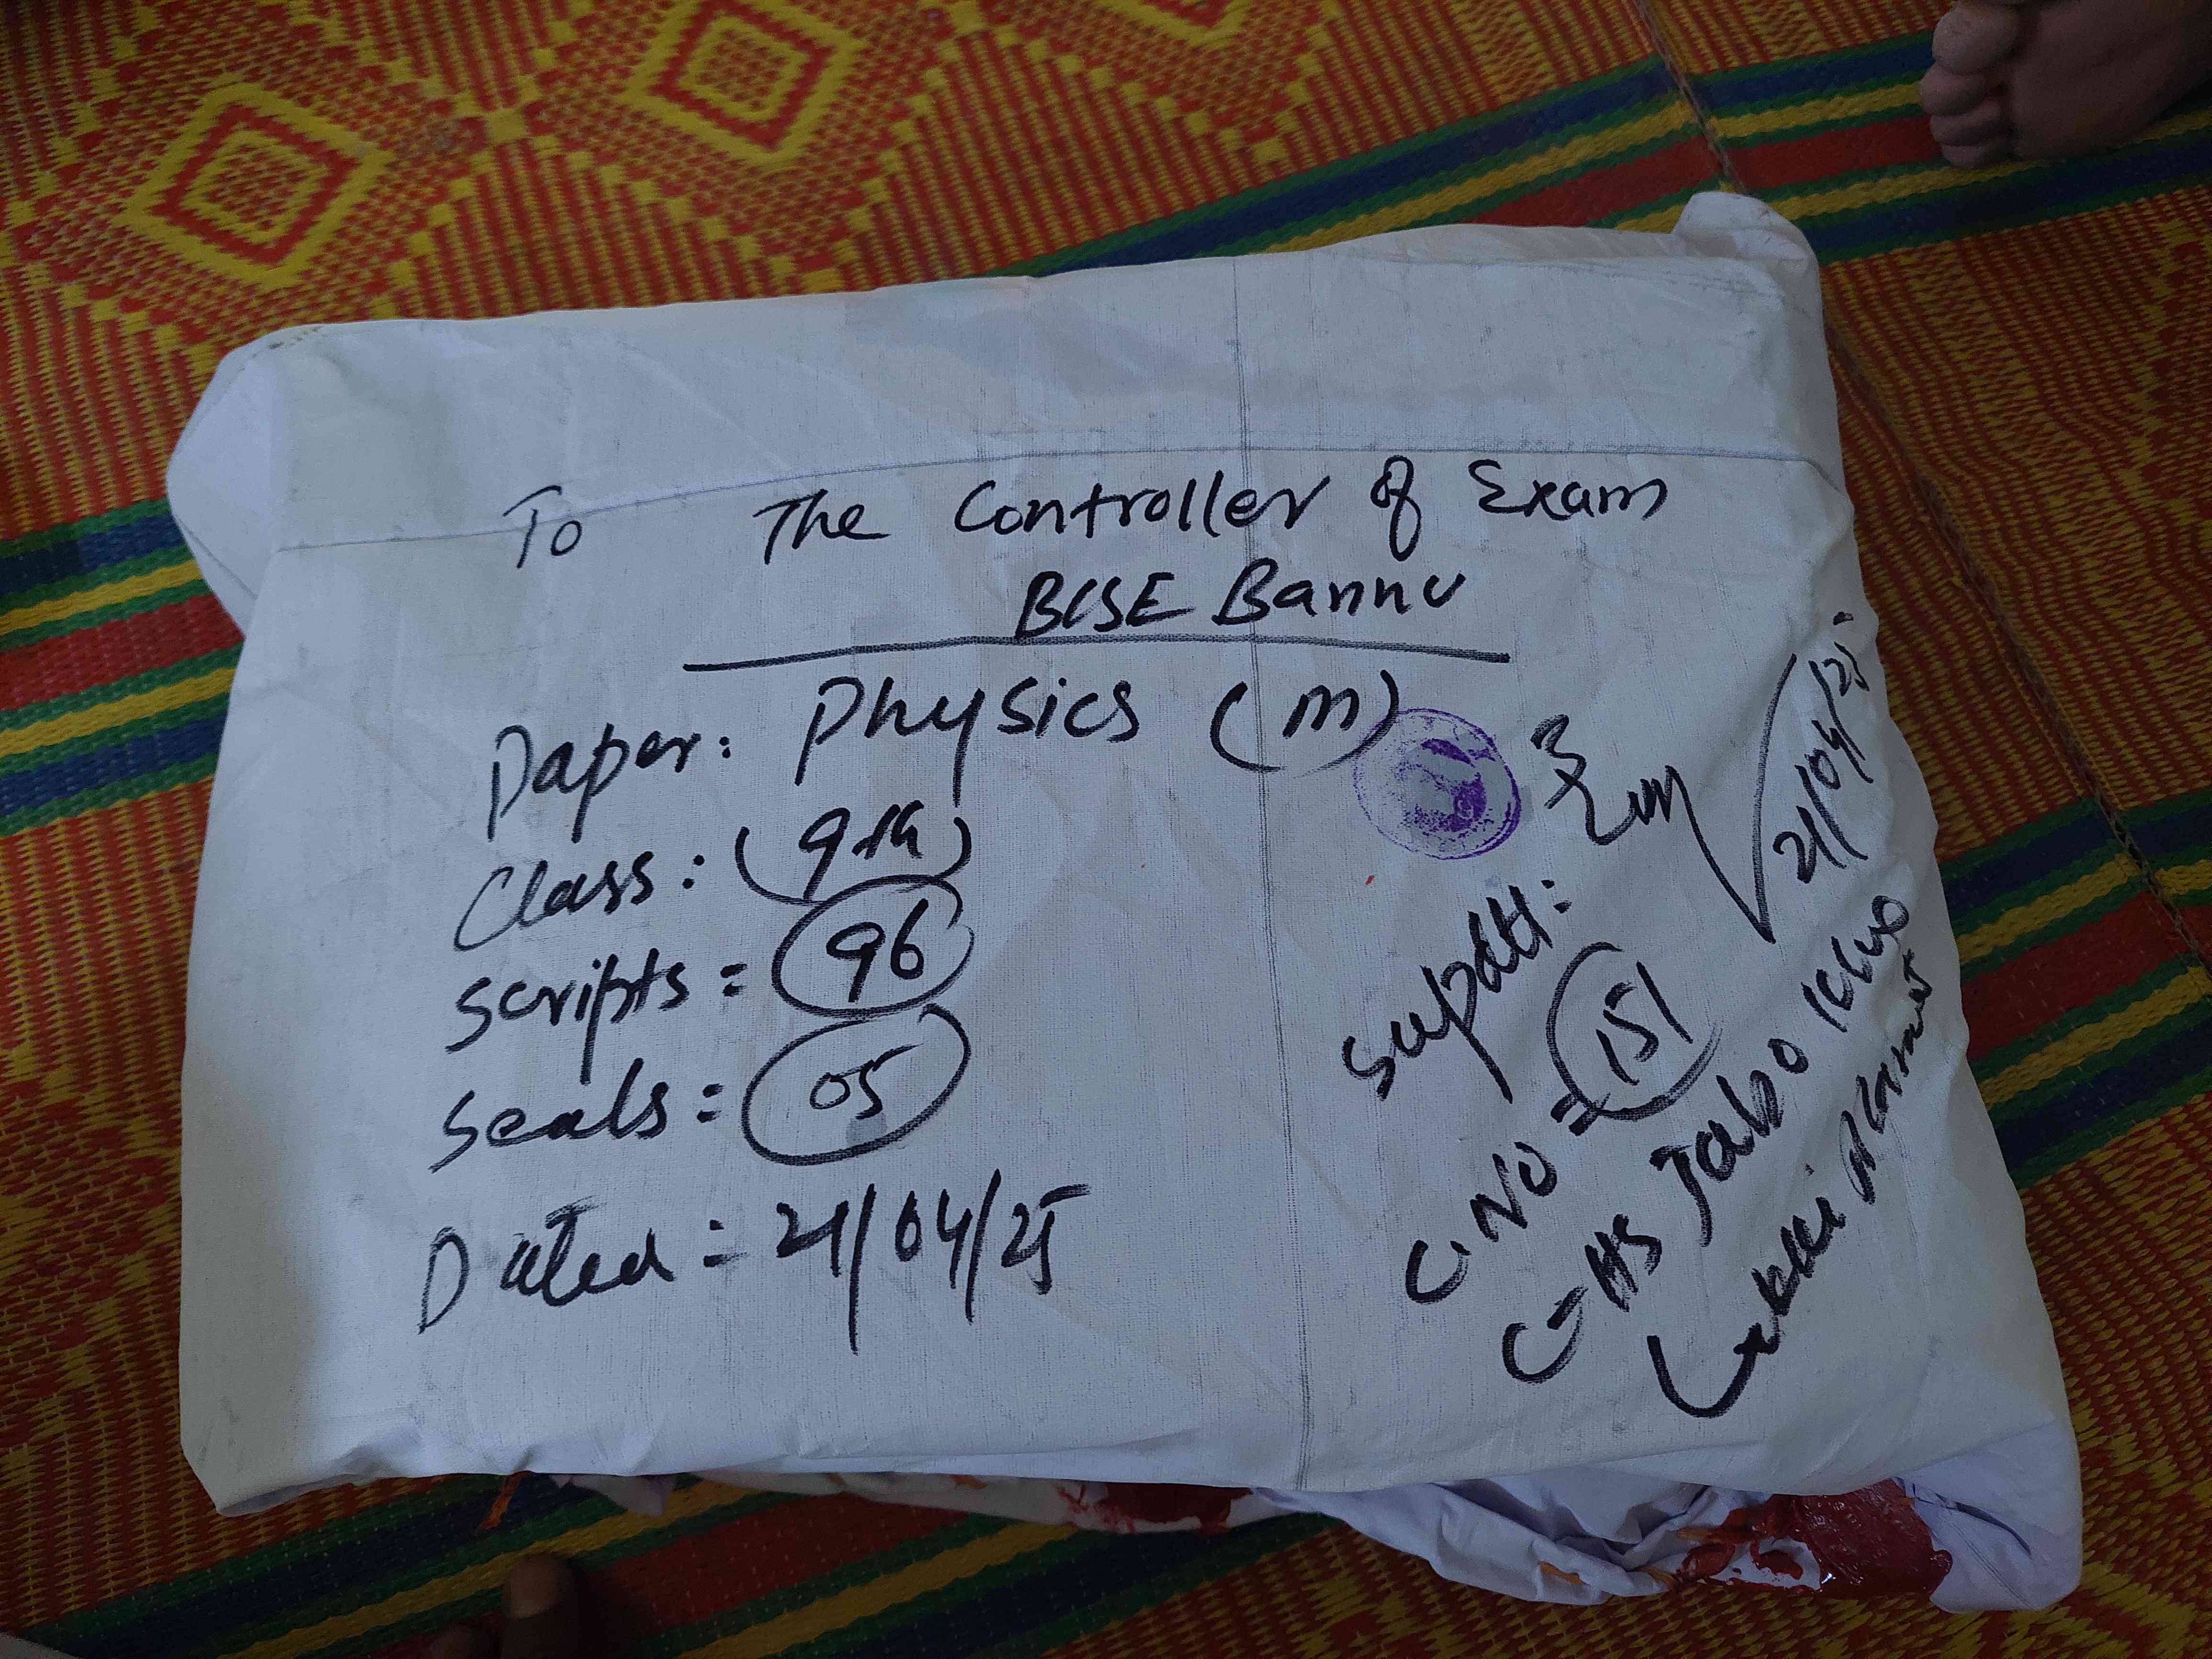 To The Controller of Exam
BISE Bannu
Paper: Physics (M)
Class: (9th)
Scripts = 96
Seals = 05
Dated = 21/04/25
21/04/25
Supdtt:
C.NO = 151
GHS Jabo Khel
Lakki Marwat